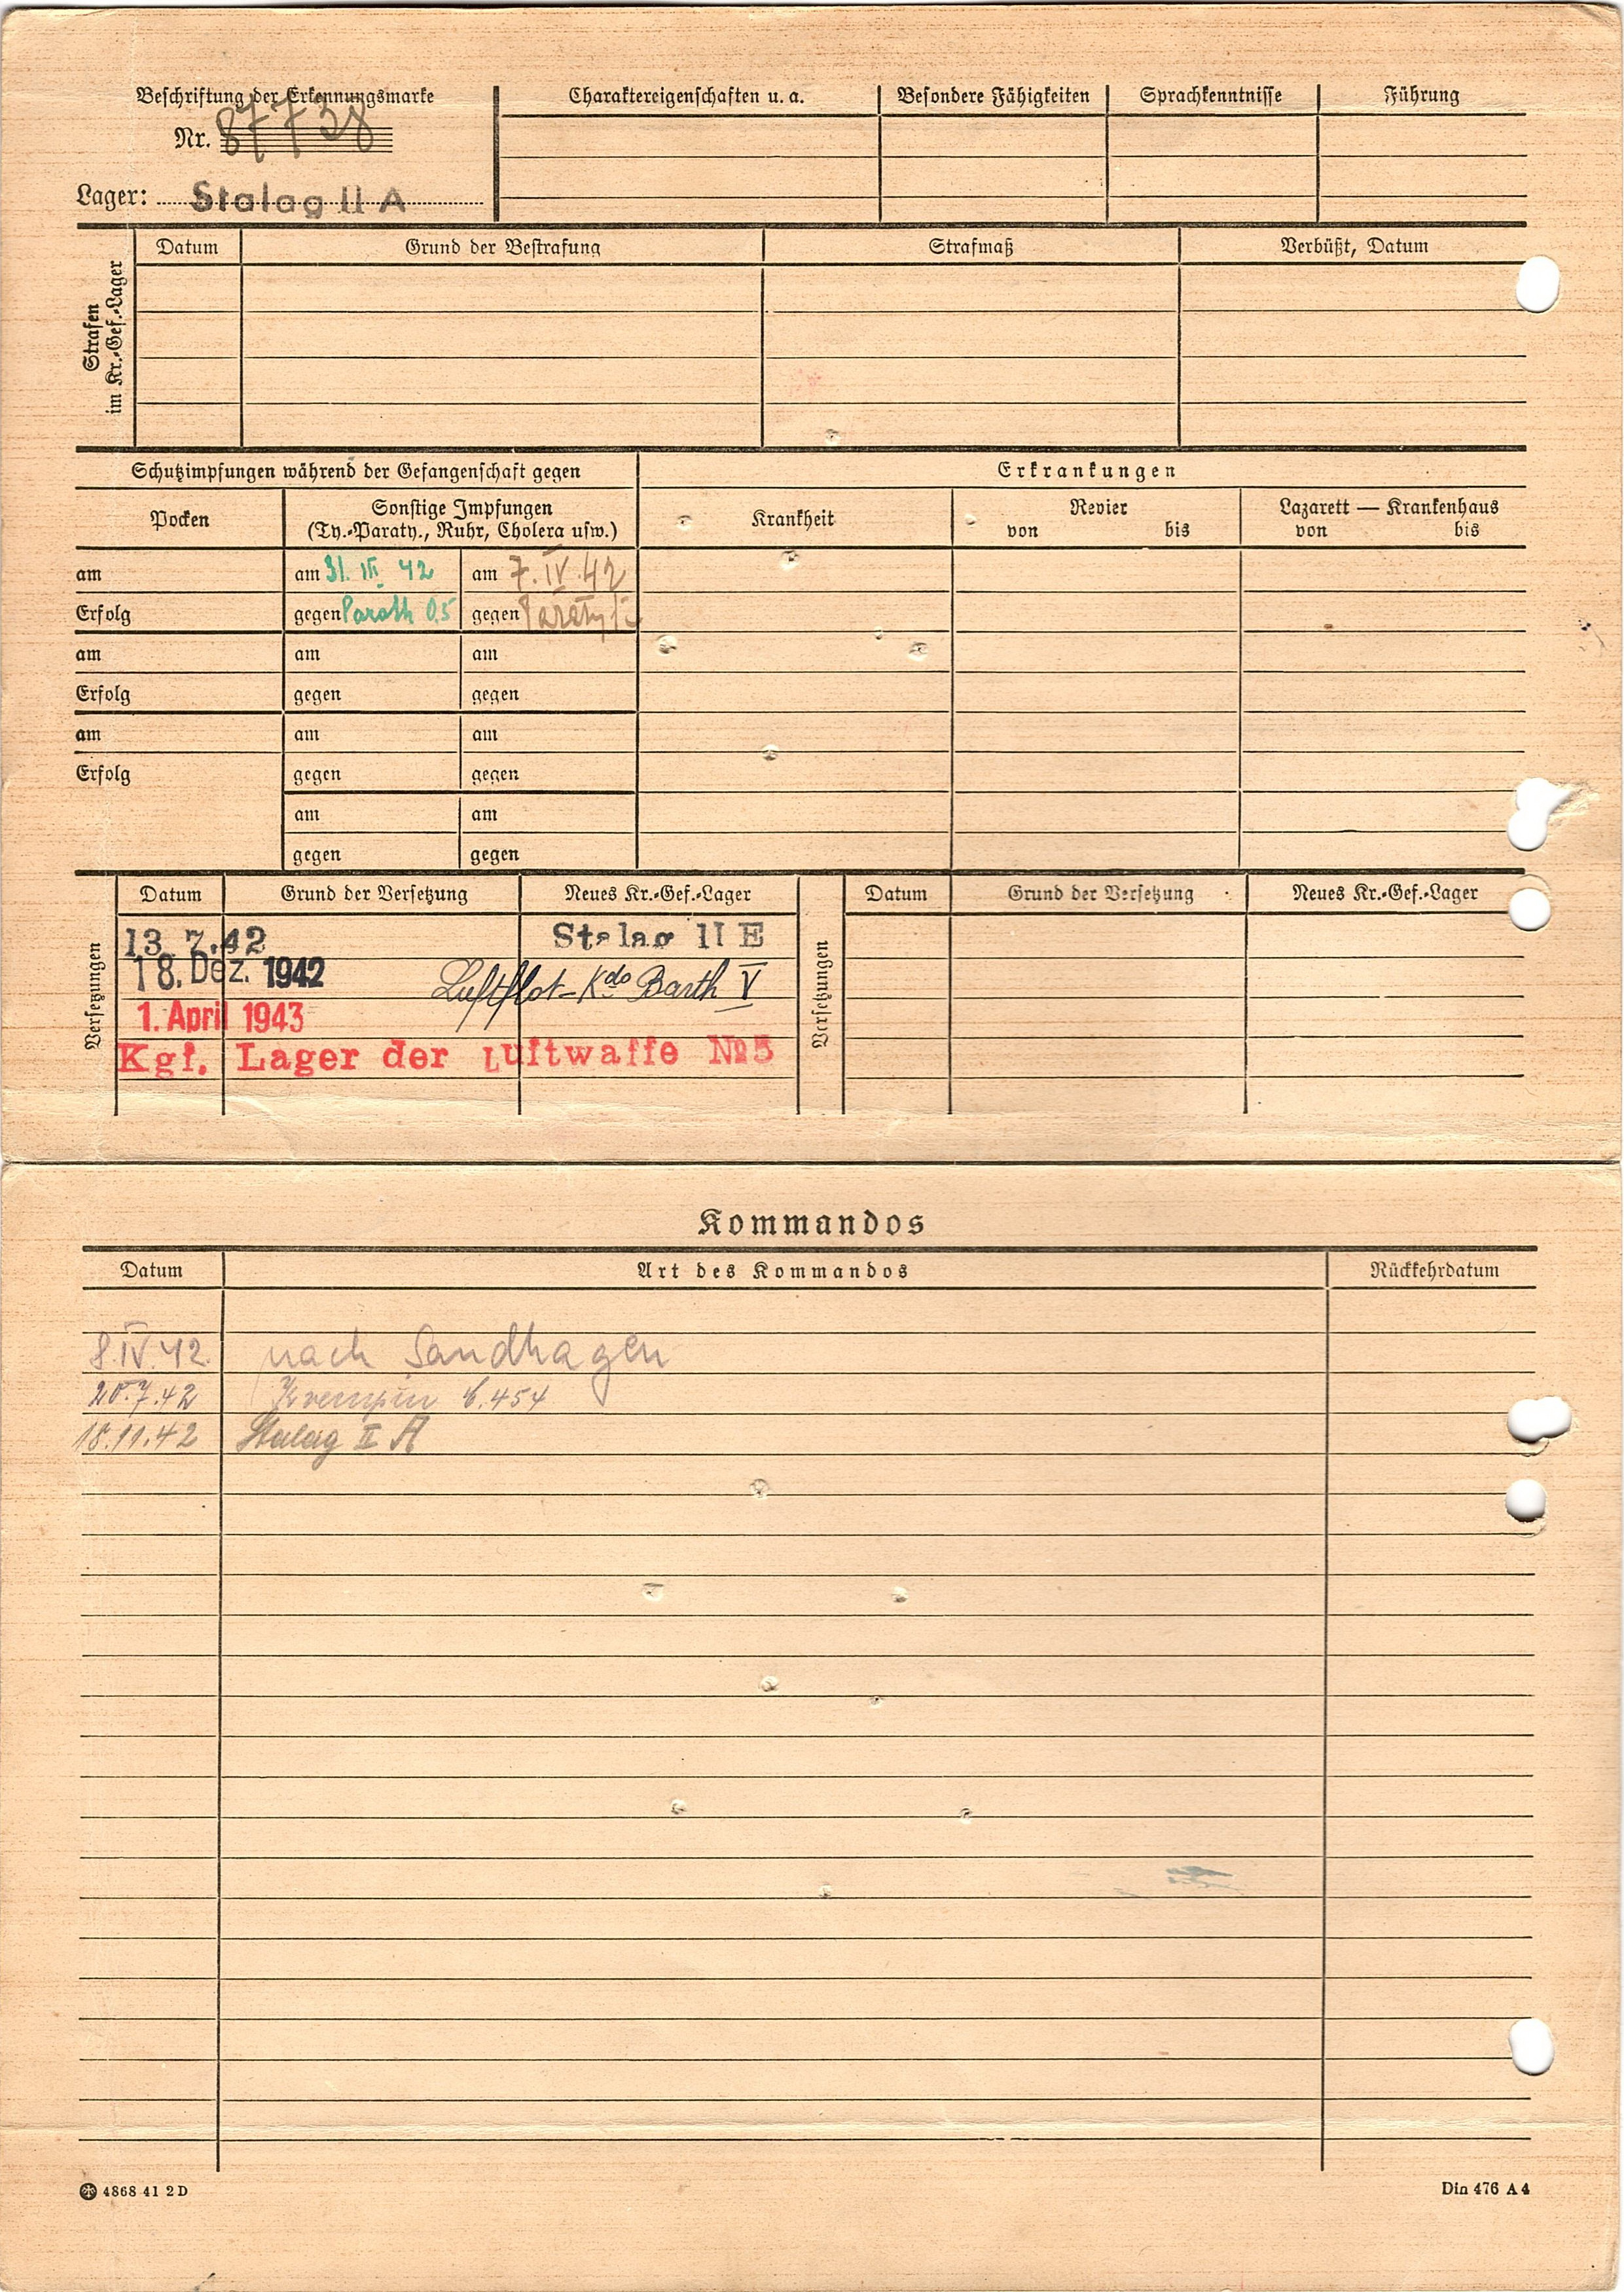 Beschriftung der Erkennungsmarke
Nr. 87738
Lager: Stalag II A
Charaktereigenschaften u. a. Besondere Fähigkeiten Sprachkenntnisse Führung
Strafen
im Kr.-Gef.-Lager
Datum Grund der Bestrafung Strafmaß Verbüßt, Datum
Schutzimpfungen während der Gefangenschaft gegen Erkrankungen
Pocken
Sonstige Impfungen
(Ty.-Paraty., Ruhr, Cholera usw.)
Krankheit
Revier
von bis
Lazarett — Krankenhaus
von bis
am am 31. III 42 am 7.IV.42
Erfolg gegen Parath 0,5 gegen Paraty
am am am
Erfolg gegen gegen
am am am
Erfolg gegen gegen
am am
gegen gegen
Versetzungen
Datum Grund der Versetzung Neues Kr.-Gef.-Lager
13. 7.42 Stalag II E
18. Dez. 1942 Luftflot-Kdo Barth V
1. April 1943
Kgf. Lager der Luftwaffe No 5
Versetzungen
Datum Grund der Versetzung Neues Kr.-Gef.-Lager
Kommandos
Datum Art des Kommandos Rückkehrdatum
8.IV.42. nach Sandhagen
20.7.42 Krempin 6.454
18.11.42 Stalag II A
4868 41 2 D
Din 476 A 4